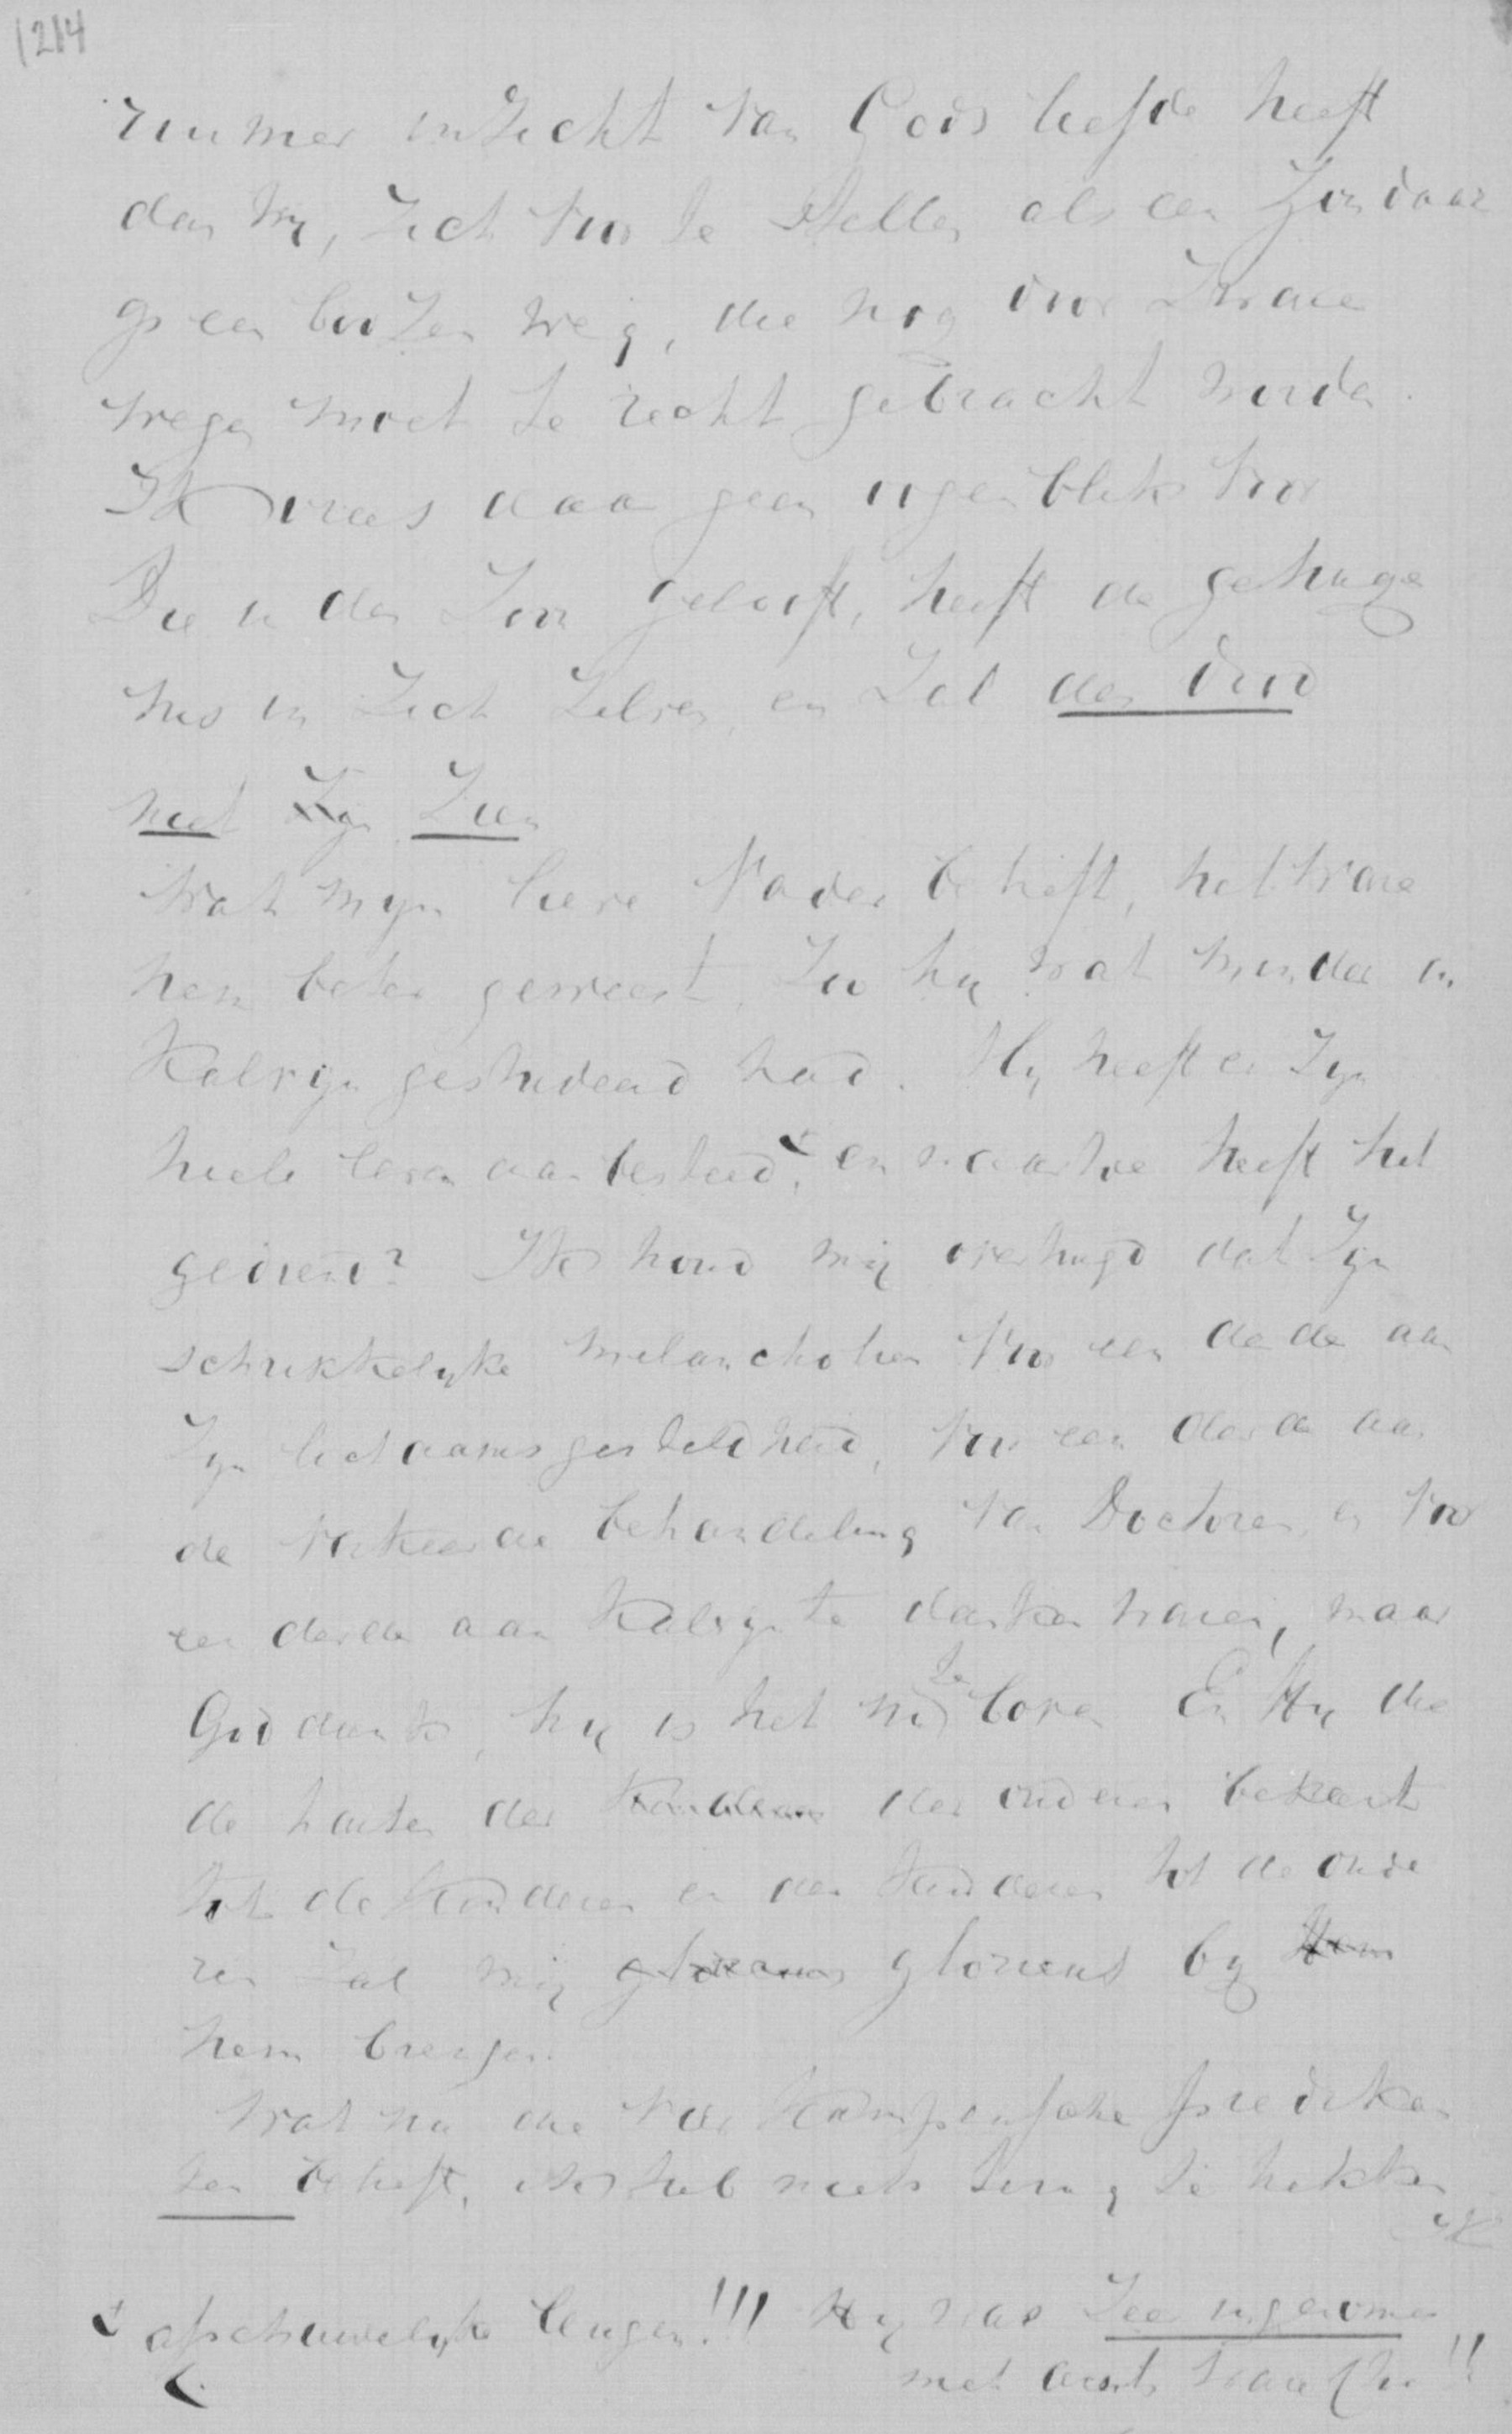 1214
ruimer inzicht van Gods liefde heeft
dan wy, zich voor te stellen als een zondaar
op een boozen weg, die nog door zware
wegen moet te recht gebracht worden.
Ik vrees daar geen oogenblik voor
Die in den Zoon gelooft, heeft de getuige
nis in zich zelven, en zal den dood
niet zien
Wat myn lieve Vader betreft, het ware
hem beter geweest, zoo hy wat minder in
Kalvyn gestudeerd had. Hy heeft er zyn
heele leven aan besteed, en waartoe heeft het
gediend? Ik houd my overtuigd dat zyn
schrikkelyke melancholien voor een derde aan
zyn lichaamsgesteldheid, voor een derde aan
de verkeerde behandeling van Doctoren, en voor
een derde aan Kalvyn te danken waren, maar
God dank, hy is het nu te boven En Hy die
de harten der kinderen der ouderen bekeert
tot de kinderen en der kinderen tot de oude
ren zal my glorieus by
hem brengen.
Wat nu die vier Kampensche predikan
ten betreft, ik heb niets terug te trekken
ik
afschuwelyke leugen!!! Hy was zeer ingenomen
met